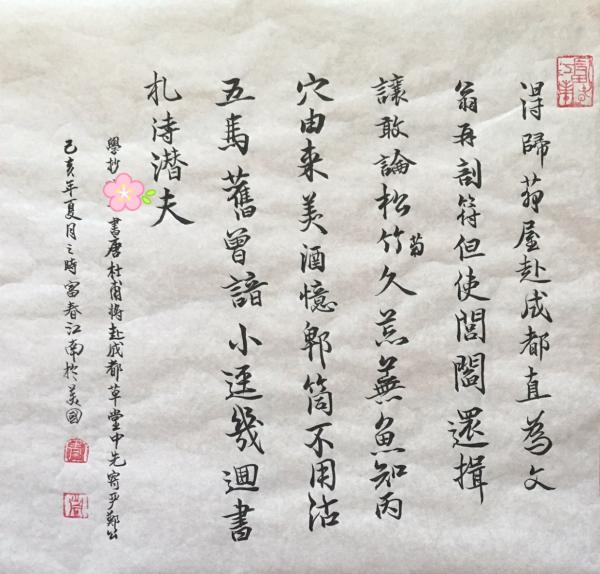 得歸茅屋赴成都直為文
翁再剖符但使閭閻還揖
讓敢論松竹久荒蕪魚知丙
菊
穴由来美酒憶郫筒不用沽
五馬舊曾諳小逕幾迴書
札待潜夫
學抄 書唐杜甫將赴成都草堂中先寄严鄭公
己亥年夏月之時富春江南於美國